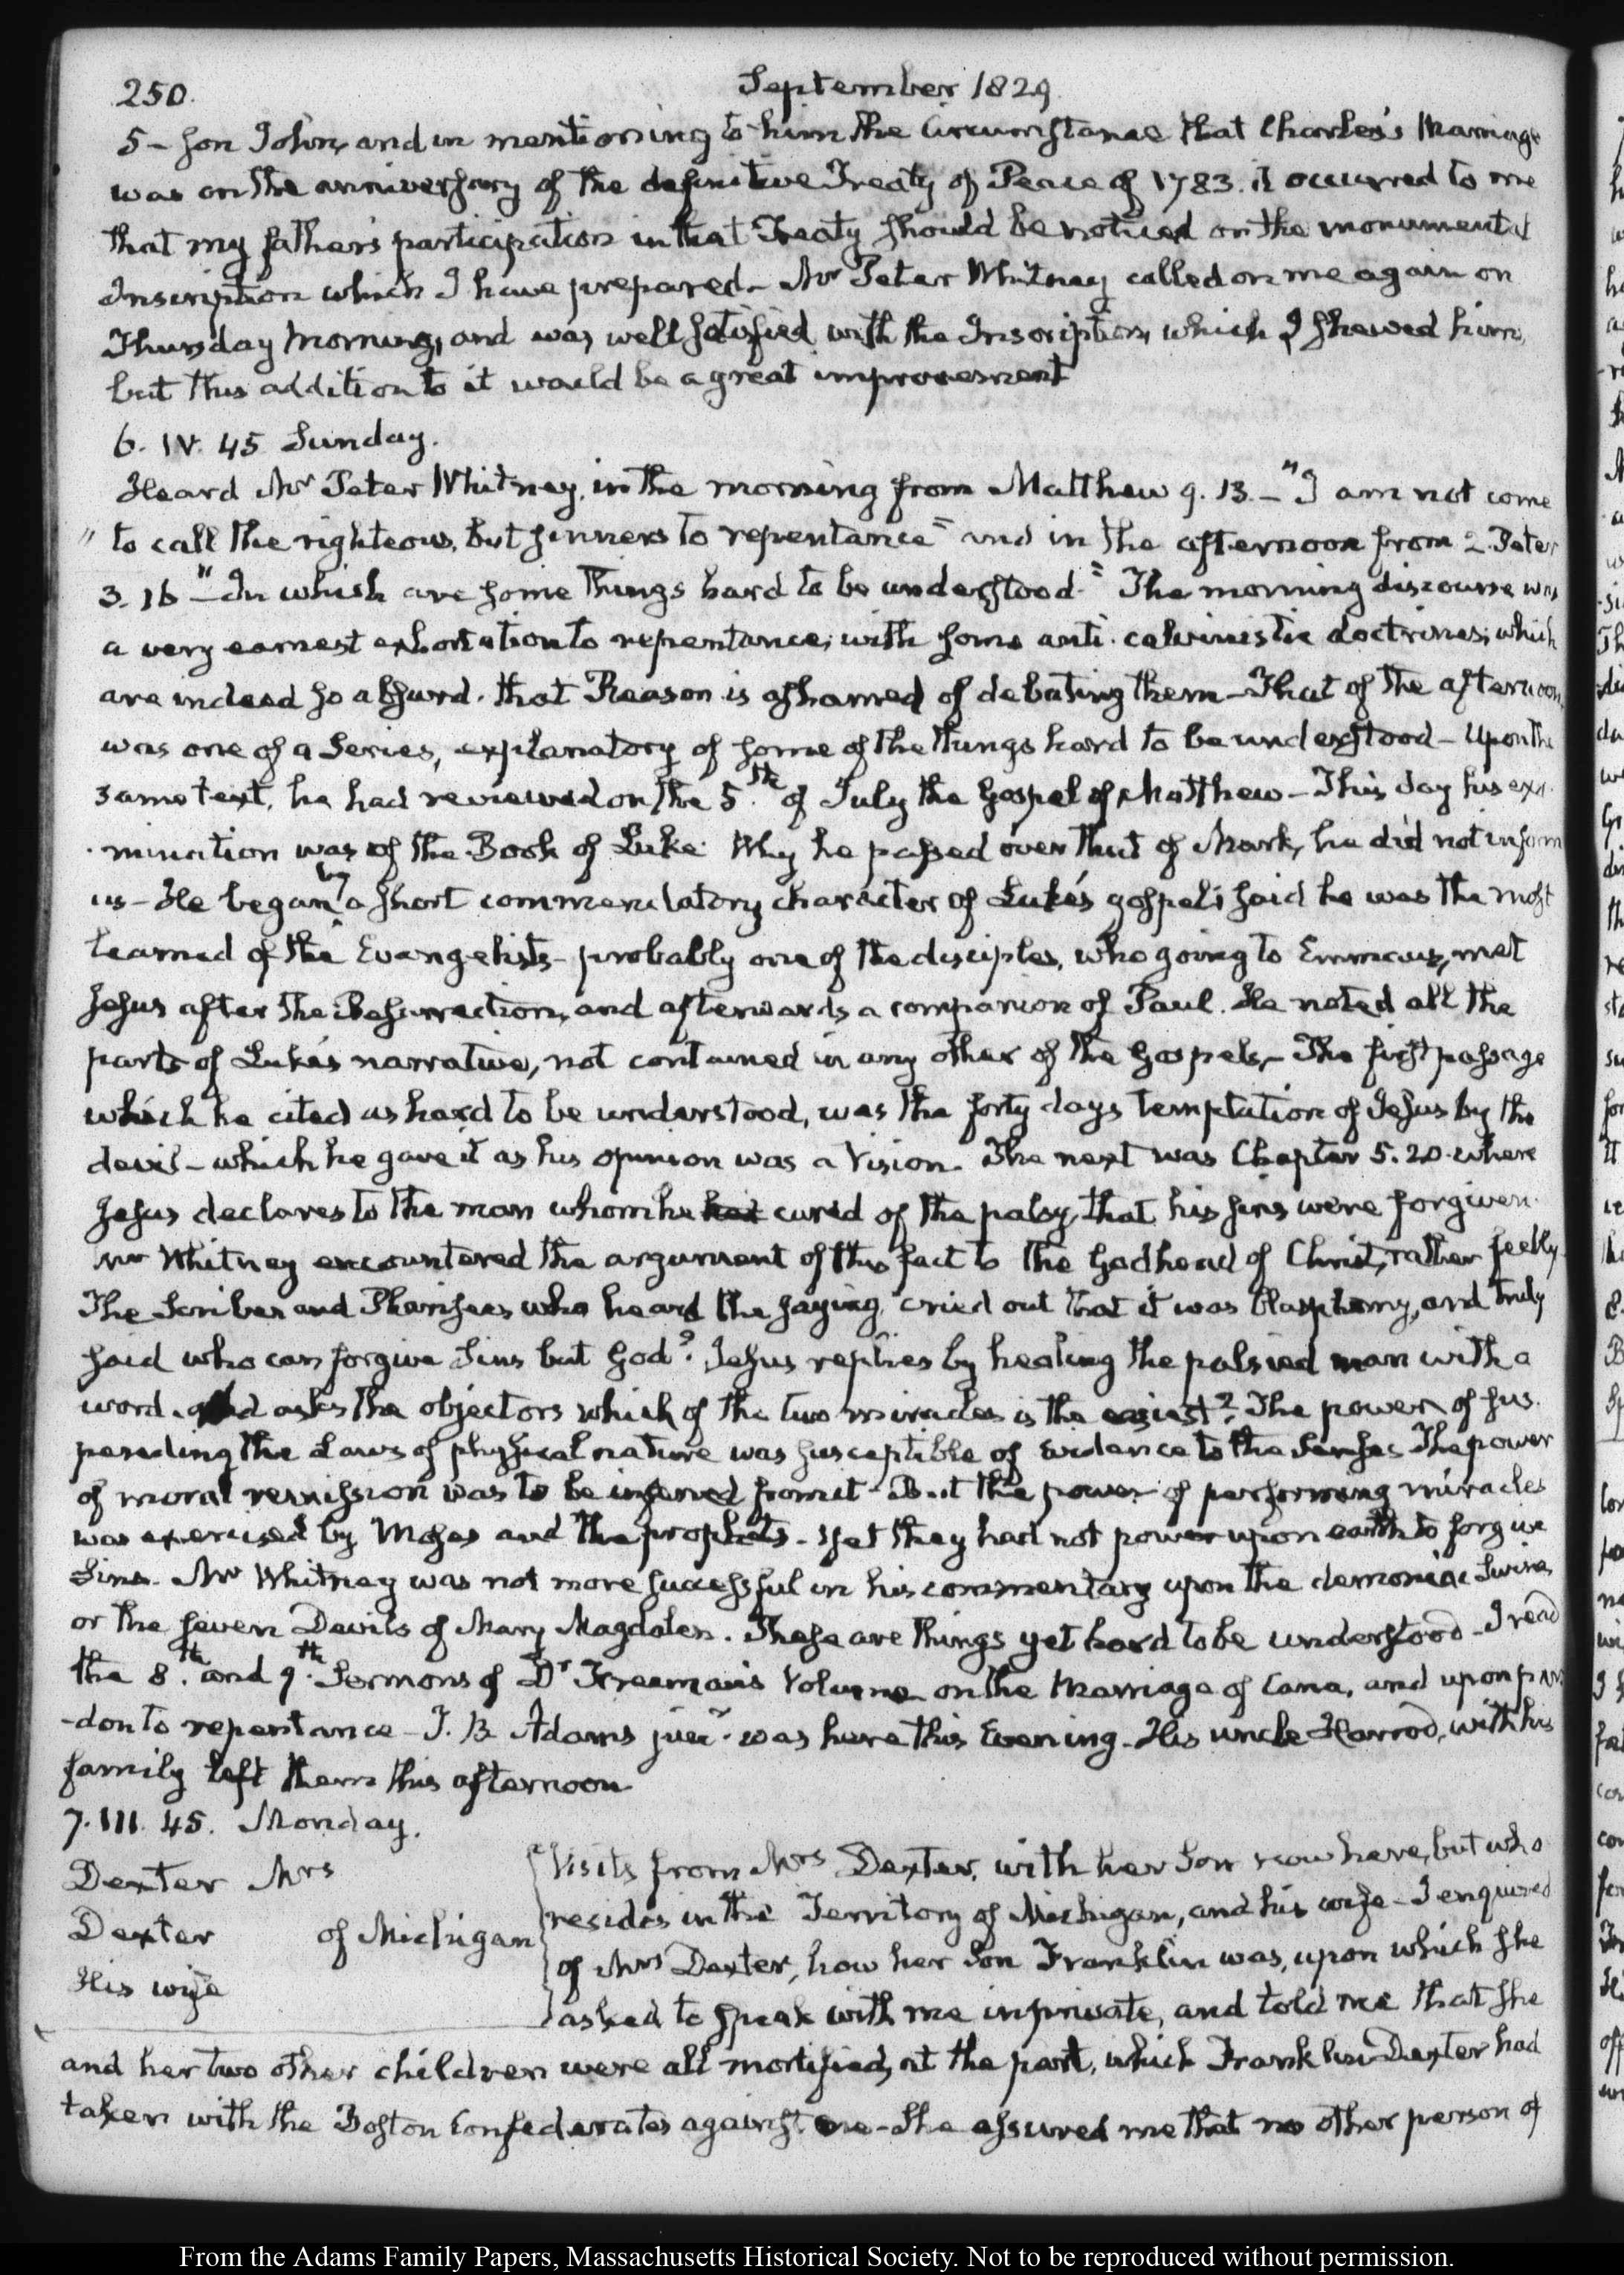 250.
September 1829.
5 - son John, and in mentioning to him the circumstance that Charles's Marriage
was on the anniversary of the definitive Treaty of Peace of 1783. it occurred to me
that my father's participation in that Treaty should be noticed on the monumental
Inscription which I have prepared - Mr Peter Whitney called on me again on
Thursday Morning, and was well satisfied with the Inscription, which I shewed him,
but this addition to it would be a great improvement
6. IV. 45 Sunday.
Heard Mr Peter Whitney, in the morning from Matthew 9. 13. - "I am not come
" to call the righteous, but sinners to repentance" and in the afternoon from 2. Peter
3. 16 "- In which are some things hard to be understood." The morning discourse was
a very earnest exhortation to repentance; with some anti-calvinistic doctrines; which
are indeed so absurd. that Reason is ashamed of debating them - That of the afternoon,
was one of a Series, explanatory of some of the things hard to be understood - Upon the
same text, he had reviewed on the 5.th of July the Gospel of Matthew - This day his exa-
-mination was of the Book of Luke. Why he passed over that of Mark, he did not inform
us - He began by a short commendatory character of Luke's gospel; said he was the most
learned of the Evangelists - probably one of the disciples, who going to Emmaus, met
Jesus after the Resurrection, and afterwards a companion of Paul. He noted all the
parts of Luke's narrative, not contained in any other of the Gospels - The first passage
which he cited as hard to be understood, was the forty days temptation of Jesus by the
devil - which he gave it as his opinion was a Vision. The next was Chapter 5. 20. where
Jesus declares to the man whom he had cured of the palsy, that his sins were forgiven.
Mr Whitney encountered the argument of this fact to the Godhead of Christ, rather feebly.
The Scribes and Pharisees who heard the saying, cried out that it was blasphemy, and truly
said who can forgive Sins but God? Jesus replies by healing the palsied man with a
word. and asks the objectors which of the two miracles is the easiest? The power of sus-
pending the Laws of physical nature was susceptible of evidence to the senses. The power
of moral remission was to be inferred from it - But the power of performing miracles
was exercised by Moses and the prophets - yet they had not power upon earth to forgive
Sins. Mr Whitney was not more successful in his commentary upon the demoniac Swine,
or the seven Devils of Mary Magdalen. These are things yet hard to be understood - I read
the 8.th and 9.th Sermons of Dr Freeman's Volume on the Marriage of Cana, and upon par-
-don to repentance - T. B. Adams junr. was here this Evening. His uncle Harrod, with his
family left them this afternoon
7. III. 45. Monday.
Dexter Mrs
Dexter of Michigan
His wife
Visits from Mrs Dexter, with her Son now here, but who
resides in the Territory of Michigan, and his wife - I enquired
of Mrs Dexter, how her Son Franklin was, upon which she
asked to speak with me in private, and told me that she
and her two other children were all mortified, at the part, which Franklin Dexter had
taken with the Boston Confederates against me - She assured me that no other person of
From the Adams Family Papers, Massachusetts Historical Society. Not to be reproduced without permission.